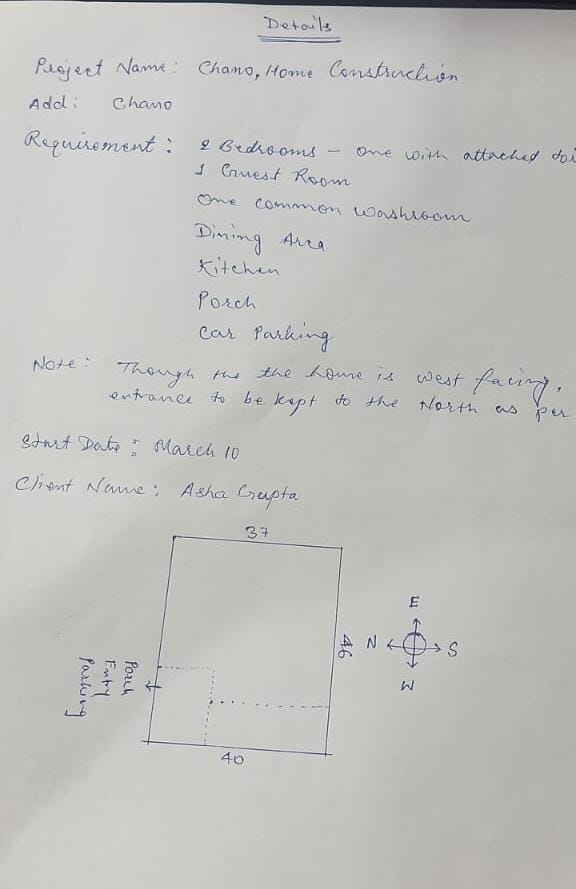 Details
Project Name: Chano, Home Construction
Add: Chano
Requirement: 2 Bedrooms - one with attached
1 Guest Room
One common washroom
Dining Area
Kitchen
Porch
Car Parking
Note: Though the the home is west facing,
entrance to be kept to the North as per
Start Date: March 10
Client Name: Asha Gupta
37
E
46
N S
W
Porch
Entry
Parking
40